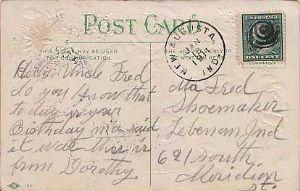 POST CARD
NEW AUGUSTA, IND.
THIS SPACE MAY BE USED FOR COMMUNICATION
Hello Uncle Fred
do you know that
to day is your
Birthday ma said
it was this is
from Dorothy
Mr Fred
Shoemaker
Lebenan Ind
621 South
Meridian
St.